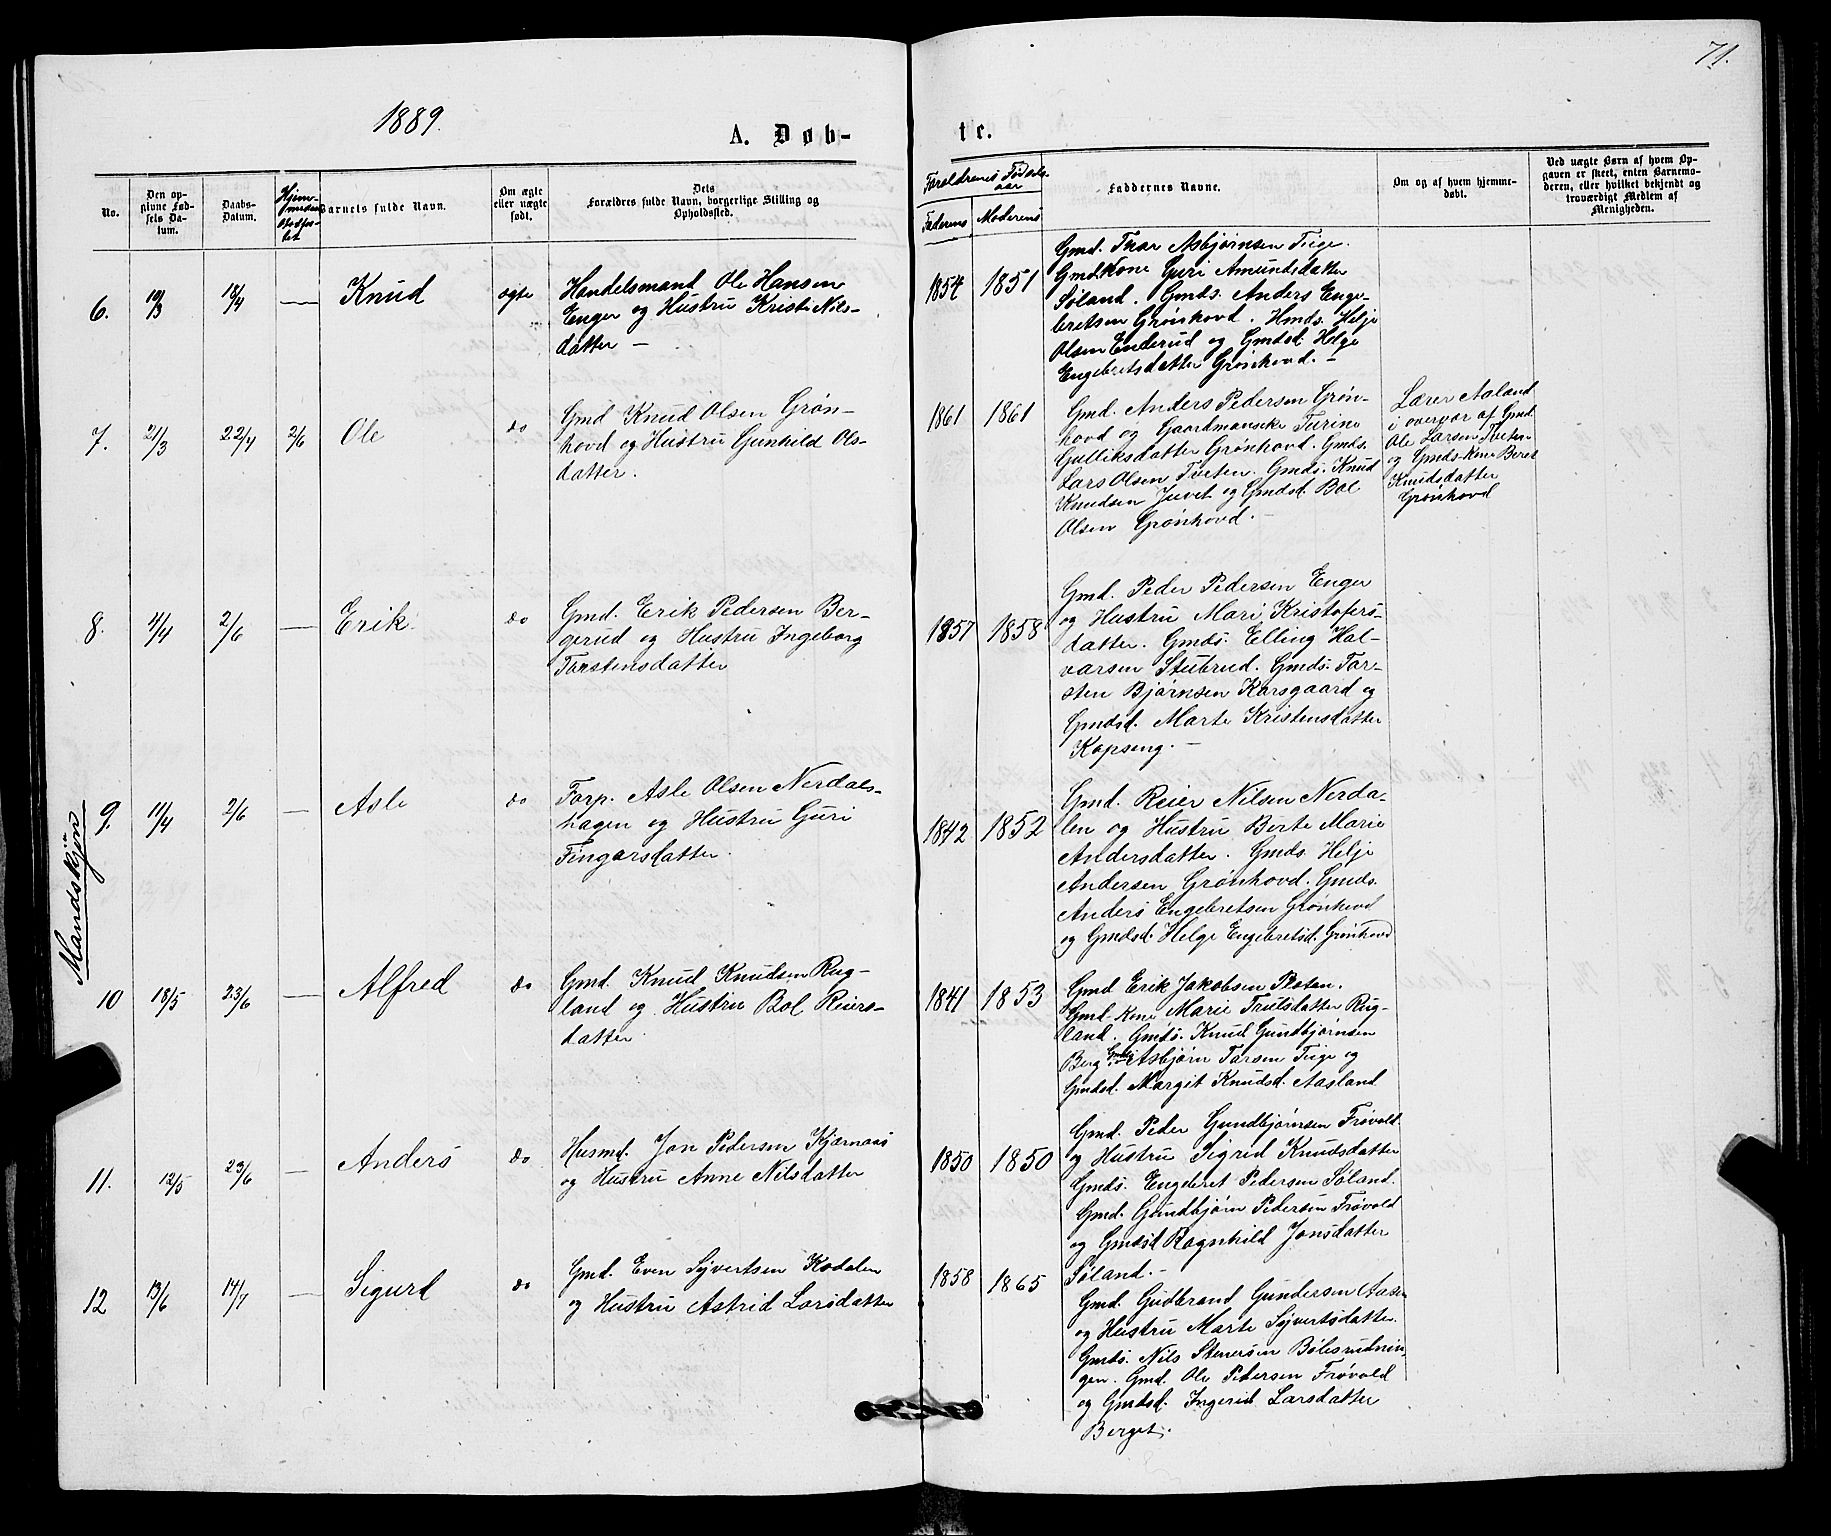 71.
1889.
A. Døb-
te.
No.
Den op-
givne Fød-
sels Da-
tum.
Daabs-
Datum.
Barnets fulde Navn.
Om ægte
eller uægte
født.
Dets
Forældres fulde Navn, borgerlige Stilling og
Opholdssted.
Forældrenes Fødsels-
aar
Faderens
Moderens
Faddernes Navne.
Om og af hvem hjemme-
døbt.
Ved uægte Børn af hvem Op-
gaven er skeet, enten Barnemo-
deren, eller hvilket bekjendt og
troværdigt Medlem af
Menigheden.
Mandskjøn
6.
19/3
18/4
—
Knud
ægte
Handelsmand Ole Hansen
Enger og Hustru Kristi Nils-
datter —
1854
1851
Gmd. Thor Asbjørnsen Tuge.
Gmd Kone Guri Amundsdatter
Søland. Gmds. Anders Enge-
bretsen Grønhovd. Hmds. Helje
Olsen Enderud og Gmdsd. Helge
Engebretsdatter Grønhovd. —
7.
21/3
22/4
2/6
Ole
do
Gmd Knud Olsen Grøn-
hovd og Hustru Gunhild Ols-
datter.
1861
1861
Gmd. Anders Pedersen Grøn-
hovd og Gaardmanske Turine
Gulliksdatter Grønhovd. Gmds.
Lars Olsen Tveten. Gmds. Knud
Knudsen Juvet og Gmdsd. Bol
Olsen Grønhovd. —
Lærer Aaland
i overvær af Gmd.
Ole Larsen Tveten
og Gmds-Kone Beret
Knudsdatter
Grønhovd
8.
4/4
2/6
—
Erik
do
Gmd. Erik Pedersen Ber-
gerud og Hustru Ingeborg
Torstensdatter
1857
1858
Gmd. Peder Pedersen Enger
og Hustru Mari Kristofers-
datter. Gmds. Elling Hal-
varsen Stubrud. Gmds. Tor-
sten Bjørnsen Korsgaard og
Gmdsd. Marte Kristensdatter
Kopseng. —
9.
11/4
2/6
—
Asle
do
Torp. Asle Olsen Nerdals-
hagen og Hustru Guri
Fingarsdatter.
1842
1852
Gmd. Reier Nilsen Nerda-
len og Hustru Berte Marie
Andersdatter. Gmds. Helje
Andersen Grønhovd. Gmds.
Anders Engebretsen Grønhovd
og Gmdsd. Helge Engebretsd. Grønhovd
10
18/5
23/6
—
Alfred
do
Gmd. Knud Knudsen Rug-
land og Hustru Bol Reiers-
datter
1841
1853
Gmd Erik Jakobsen Træten.
Gmd. Kone Marie Trulsdatter Rug-
land. Gmds. Knud Gundbjørnsen
Berg Gmds Asbjørn Torsen Tuge og
Gmdsd. Margit Knudsd. Aasland
11.
12/5
23/6
—
Anders
do
Husmd. Jon Pedersen Kjærnaas
og Hustru Anne Nilsdatter
1850
1850
Gmd. Peder Gundbjørnsen Frøvold
og Hustru Sigrid Knudsdatter
Gmds. Engebret Pedersen Søland.
Gmd. Gundbjørn Pedersen Frøvold
og Gmdsd Ragnhild Jonsdatter
Søland. —
12
13/6
14/7
—
Sigurd
do
Gmd. Even Syvertsen Kodalen
og Hustru Astrid Larsdatter
1858
1865
Gmd. Gudbrand Gundersen Aasen
og Hustru Marte Syvertsdatter.
Gmds. Nils Stenersen Bølesrudnin-
gen. Gmd. Ole Pedersen Frøvold
og Gmdsd. Ingerid Larsdatter
Berget.